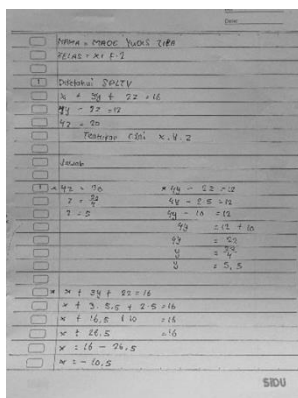 Date
NAMA = MADE YUDIS TIRA
KELAS = XI F-2
1 Diketahui SPLTV
x + 3y + 2z = 16
4y - 2z = 12
4z = 20
Tentukan nilai x.y.z
Jawab
1 * 4z = 20
z = 20/4
z = 5
* 4y - 2z = 12
4y - 2.5 = 12
4y - 10 = 12
4y = 12 + 10
4y = 22
y = 22/4
y = 5,5
* x + 3y + 2z = 16
x + 3.5,5 + 2.5 = 16
x + 16,5 + 10 = 16
x + 26,5 = 16
x = 16 - 26,5
x = - 10,5
SIDU